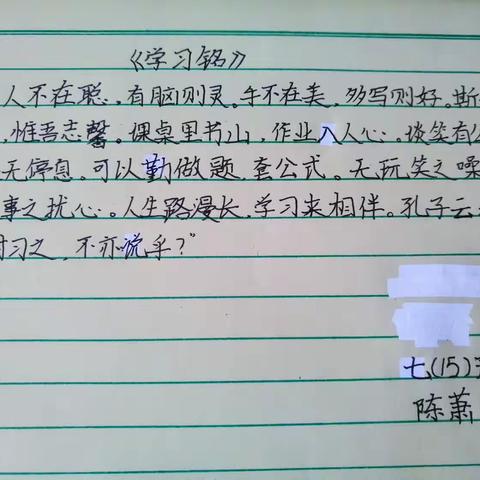 《学习铭》
人不在聪，有脑则灵。字不在美，多写则好。斯
，惟吾志馨。课桌里书山，作业入人心，谈笑有公
无停息。可以勤做题，套公式。无玩笑之嗓
事之扰心。人生路漫长，学习来相伴。孔子云：
时习之，不亦说乎？”
七(15)
陈萧